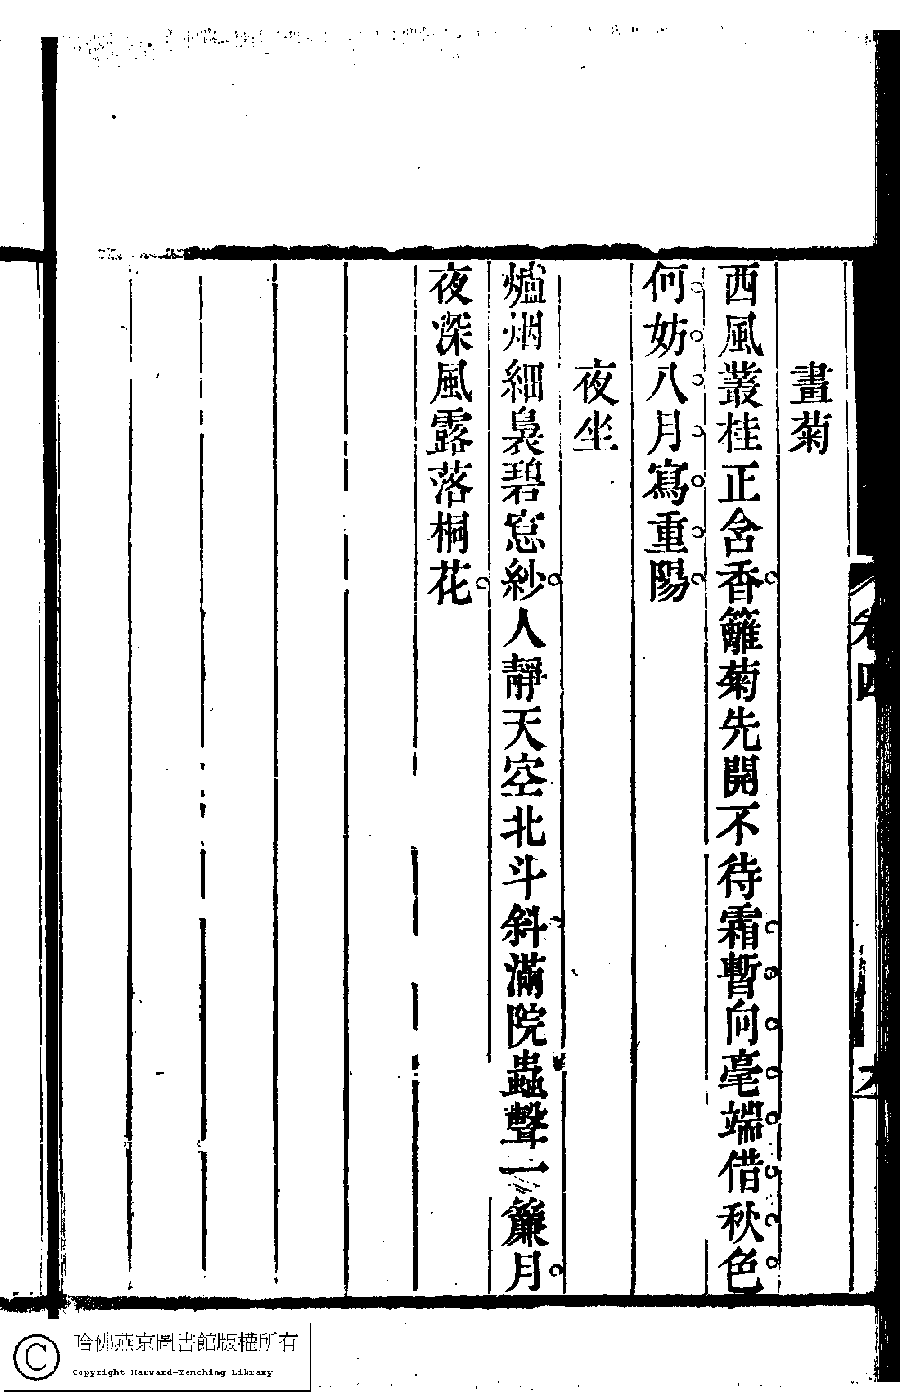 畫菊
西風叢桂正含香籬菊先開不待霜暫向毫端借秋色
何妨八月寫重陽
夜坐
爐烟細裊碧窓紗人靜天空北斗斜滿院蟲聲一簾月
夜深風露落桐花
卷四
哈佛燕京圖書館版權所有
Copyright Harvard-Yenching Library